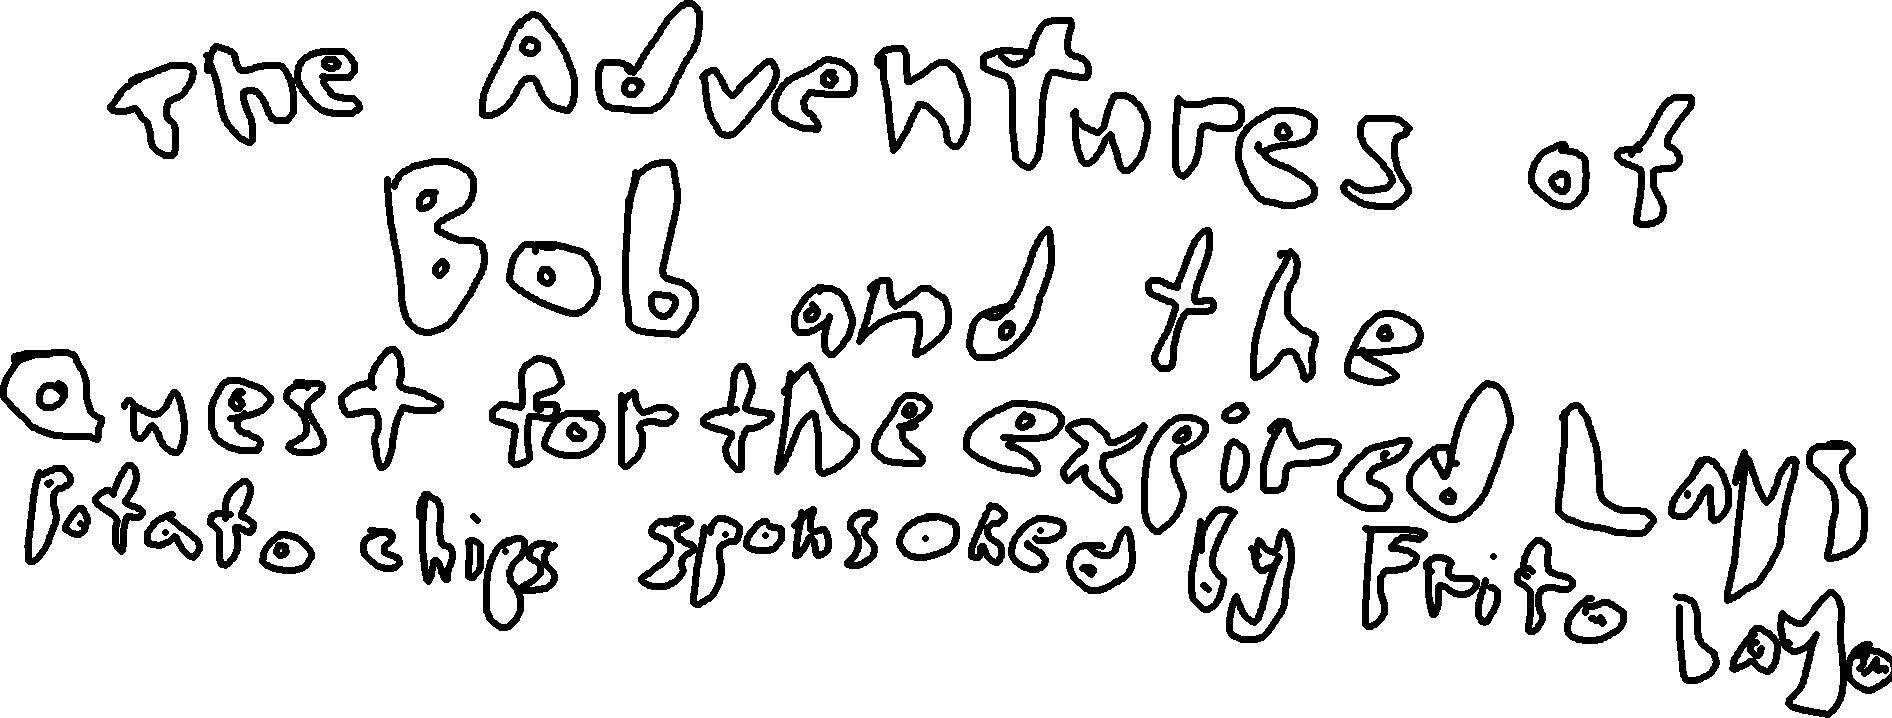 The Adventures of
Bob and the
Quest for the expired Lays
Potato chips sponsored by Frito Lay